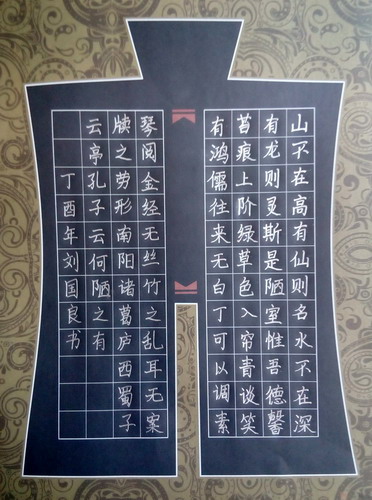 山不在高有仙则名水不在深
有龙则灵斯是陋室惟吾德馨
苔痕上阶绿草色入帘青谈笑
有鸿儒往来无白丁可以调素
琴阅金经无丝竹之乱耳无案
牍之劳形南阳诸葛庐西蜀子
云亭孔子云何陋之有
丁酉年刘国良书